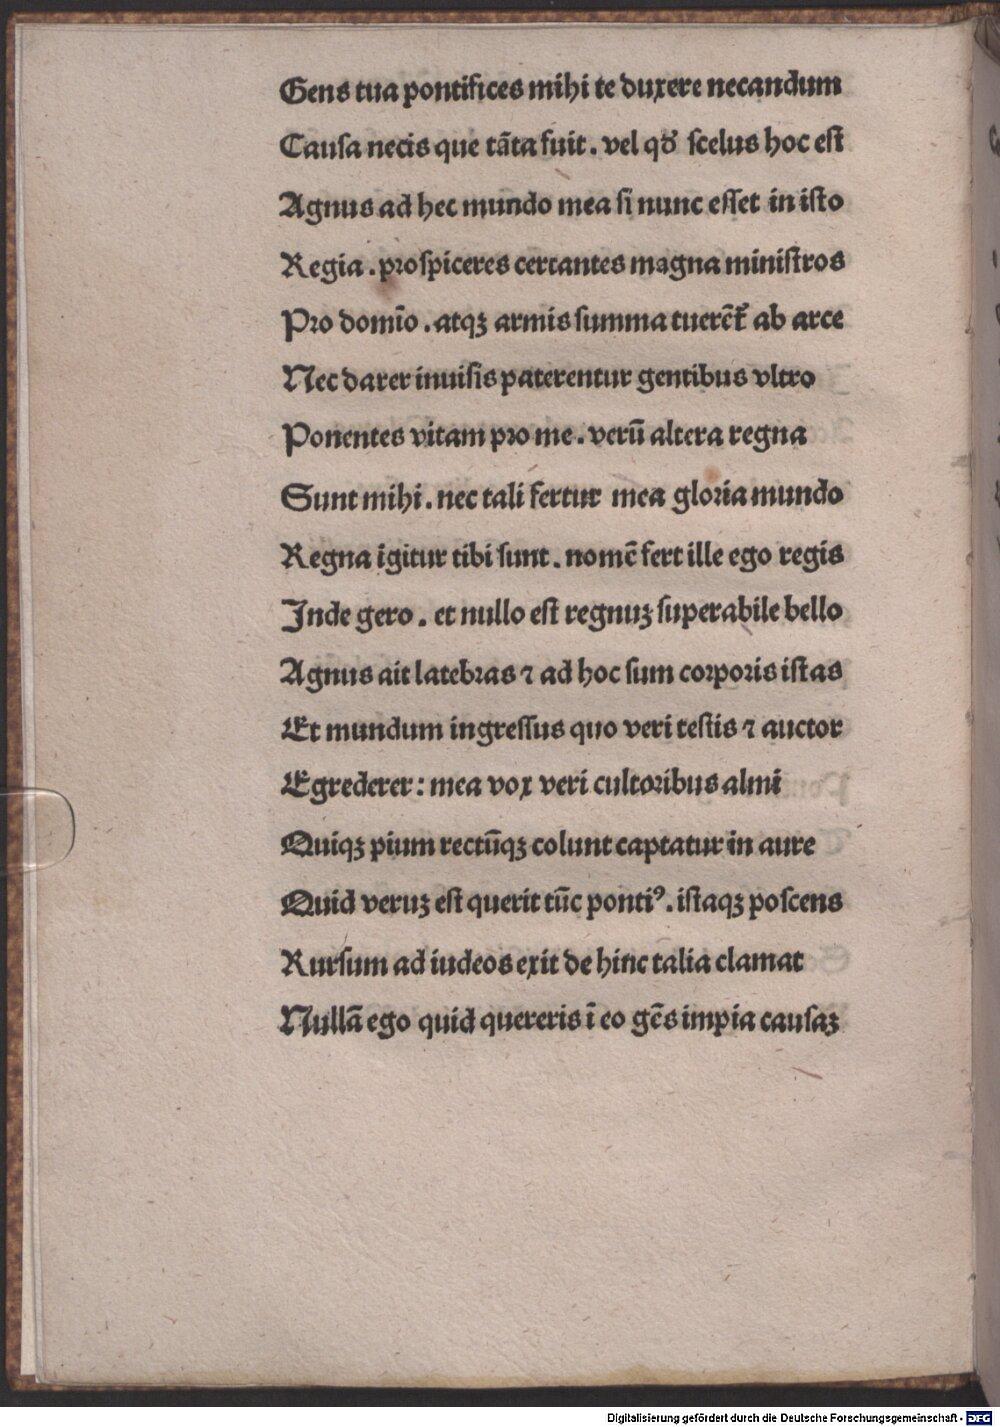 Gens tua pontifices mihi te duxere necandum
Causa necis que tãta fuit. vel qď scelus hoc est
Agnus ad hec mundo mea si nunc esset in isto
Regia. prospiceres certantes magna ministros
Pro domĩo. atqꝫ armis summa tuerẽt᷑ ab arce
Nec darer inuisis paterentur gentibus vltro
Ponentes vitam pro me. verũ altera regna
Sunt mihi. nec tali fertur mea gloria mundo
Regna igitur tibi sunt. nomẽ fert ille ego regis
Inde gero. et nullo est regnuꝫ superabile bello
Agnus ait latebras ⁊ ad hoc sum corporis istas
Et mundum ingressus quo veri testis ⁊ auctor
Egrederer: mea vox veri cultoribus almi
Quiqꝫ pium rectũqꝫ colunt captatur in aure
Quid veruꝫ est querit tũc pontiꝰ. istaqꝫ poscens
Rursum ad iudeos exit de hinc talia clamat
Nullã ego quid quereris ĩ eo gẽs impia causaꝫ
Digitalisierung gefördert durch die Deutsche Forschungsgemeinschaft - DFG